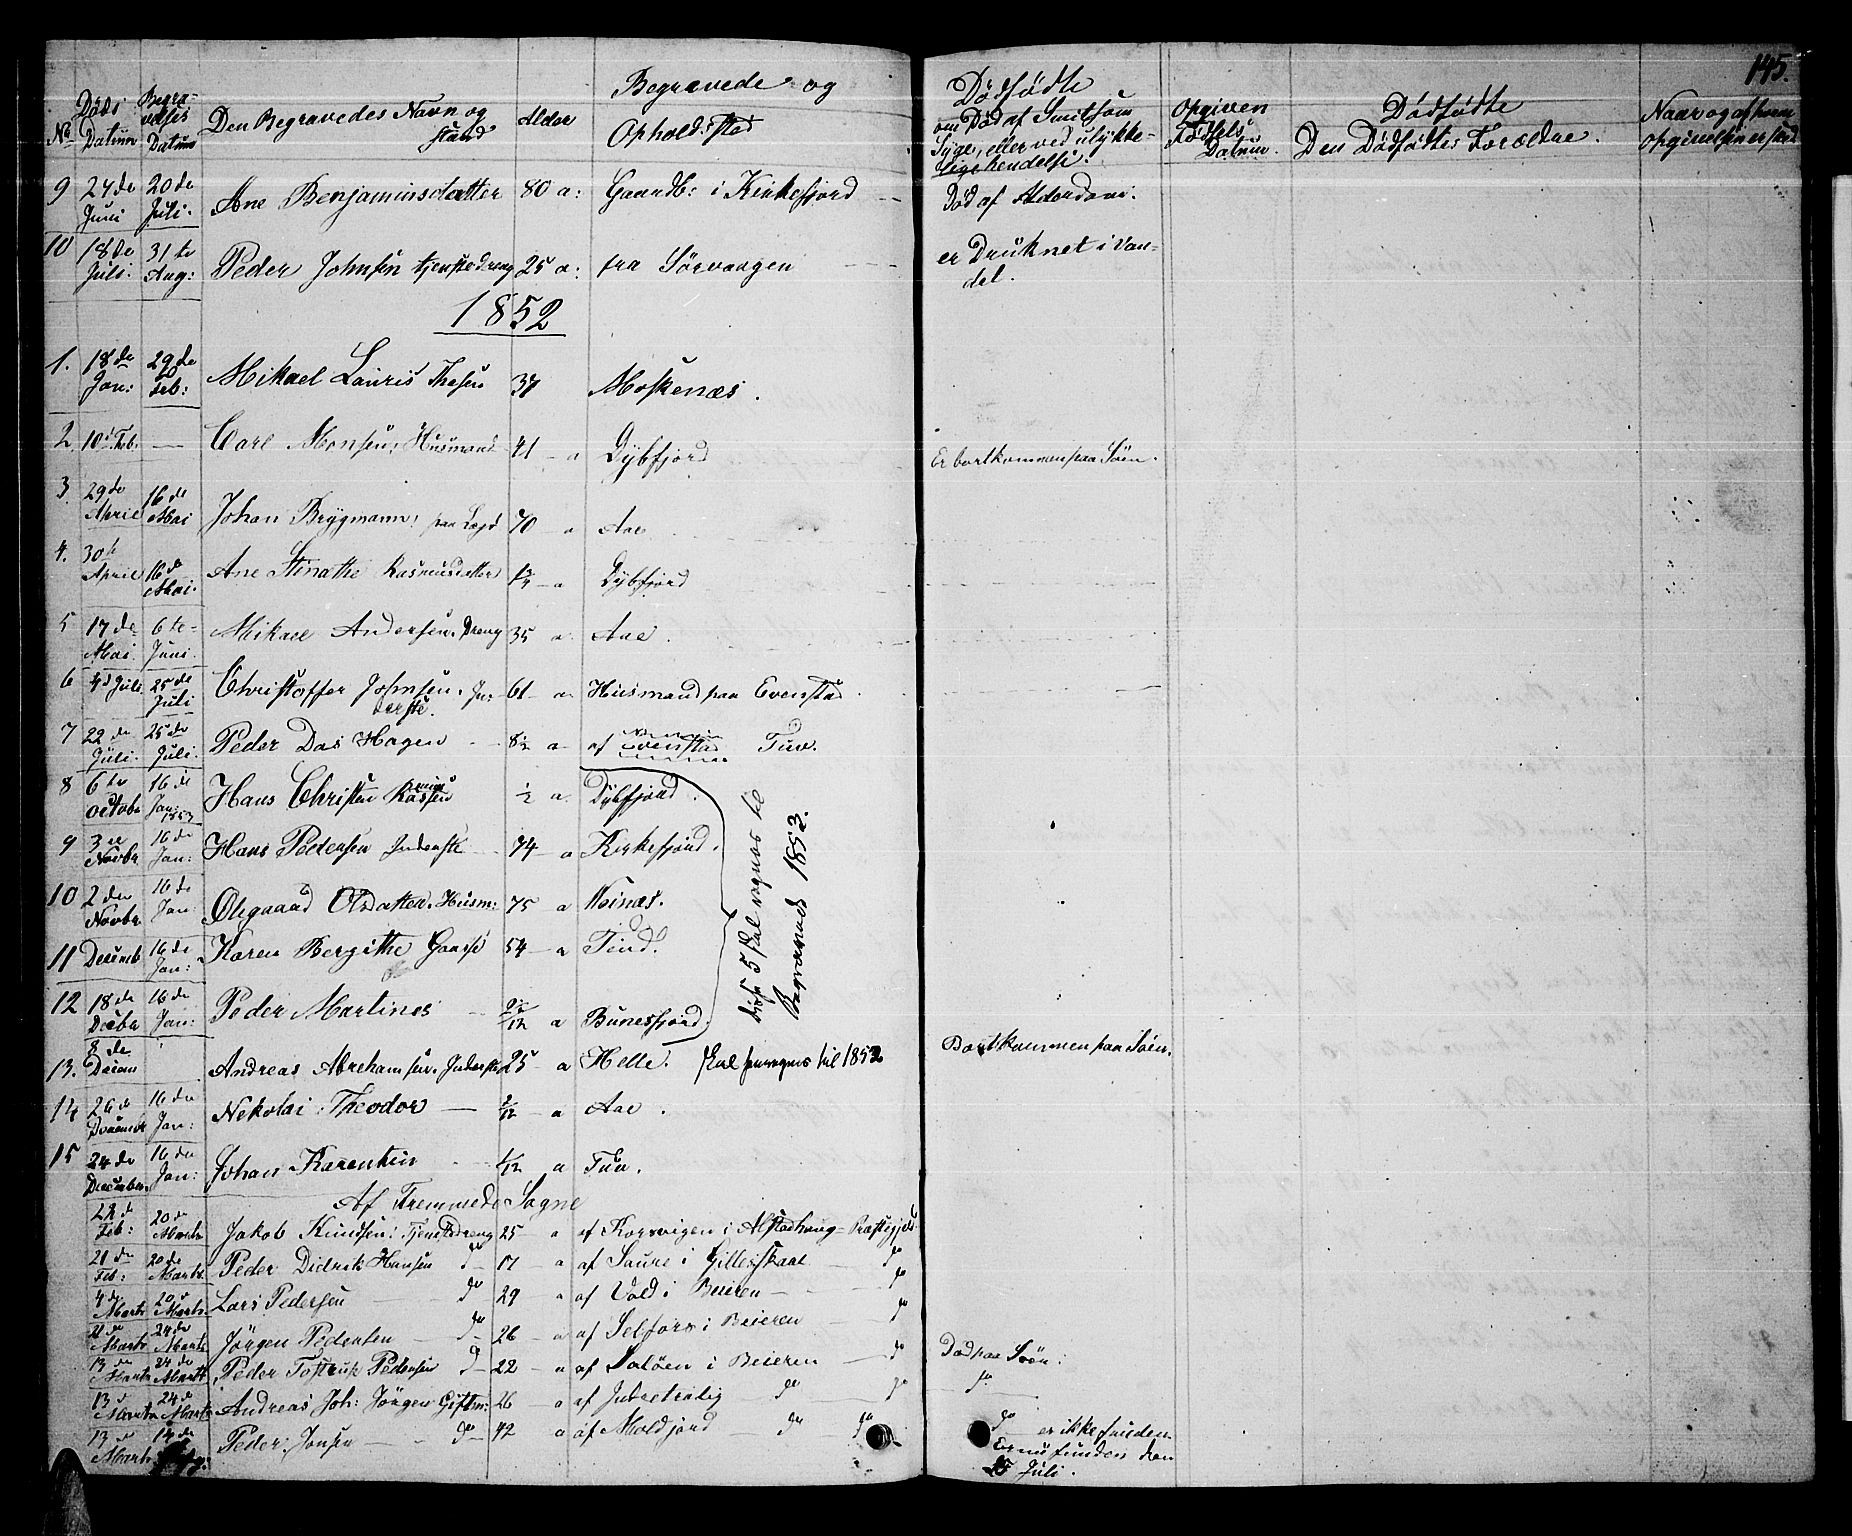 145.
Begravede og Dødfødte
No Døds Datum Begravelses Datum Den Begravedes Navn og stand Alder Opholdssted om Død af Smitsom Syge, eller ved ulykkelige hendelse. Opgiven Fødsels Datum. Dødfødte Den Dødfødtes Forældre. Naar og af hvem
9 27de Juni 20de Juli. Ane Benjaminsdatter 80 a: Gaardb: i Kirkefjord Død af Alderdom.
10 18de Juli. 31te Aug: Peder Johnsen tjenstedreng 25 a: fra Sørvaagen er Druknet i Vandet.
1852
1. 18de Jan: 29de Feb: Mikael Lauris 37 Moskenæs.
2. 10d Feb. — Carl Monsen, Husmand 41 - a Dybfjord Er bortkommen paa Søen.
3. 29de April 16de Mai Johan Brygmann, paa Lægd 70 - a Aae
4. 30te April 16de Mai. Ane Rasmusdatter - a Dybfjord
5 17de Mai. 6te Juni. Mikael Andersen. Dreng 35 a Aae.
6 Juli 25de Juli Christoffer Johnsen. Inderste. 61 - a Husmand paa Evenstad.
7 22de Juli. 25de Juli. Peder Das Hagen 8½ a af Evenstad Tuv.
8 6te Octobr 16de Jan: 1853 Hans Christen Rasmussen ½ a Dybfjord.
9 3de Novbr 16de Jan: Hans Pedersen Inderste 74 - a Kirkefjord.
10 2den Novbr 16de Jan: Olegaard Olsdatter. Husm: 75 a Reinæs.
11 Decemb 16de Jan: Karen Bergithe 54 - a Tind.
12 18de Decbr 16de Jan: Peder Martines a Bunesfjord.
Disse 5 skal regnes til Begravne 1853.
13. 8de Andreas Abrehamsen. Inderste 25 - a Helle. Skal til 1852 Bortkommen paa Søen.
14 26de Decembr 16de Jan: Nekolai Theodor — 2/12 - a Aae.
15 24de December. 16de Jan: Johan Karentin 1/12 a Tuv.
Af Fremmede Sogne
22de Feb: 20de Marts Jakob Knudsen: Tjenstedreng 25 a af Korsvigen i Alstadhaug - Præstegjeld
21de Feb: 20de Marts Peder Didrik Hansen do - 17 a af Saure i Gilleskaal do
4de Marts 20de Marts Lars Pedersen do 29 a af Vold i Beieren - do
Marts 24de Marts Jørgen Pedersen — do 26 - a af Selfors i Beieren do
13de Marts 24de Marts Peder Tostrup Pedersen d - 22 - a af i Beieren — do Død paa Søen:
13de Marts 24de Marts Andreas Joh: Jørgen Giftm: 26 - a af do do do
13de Marts 14de Peder Jonsen — do - 42 a af Moldjord do do do er ikke funden
Er nu funden den
Juli.